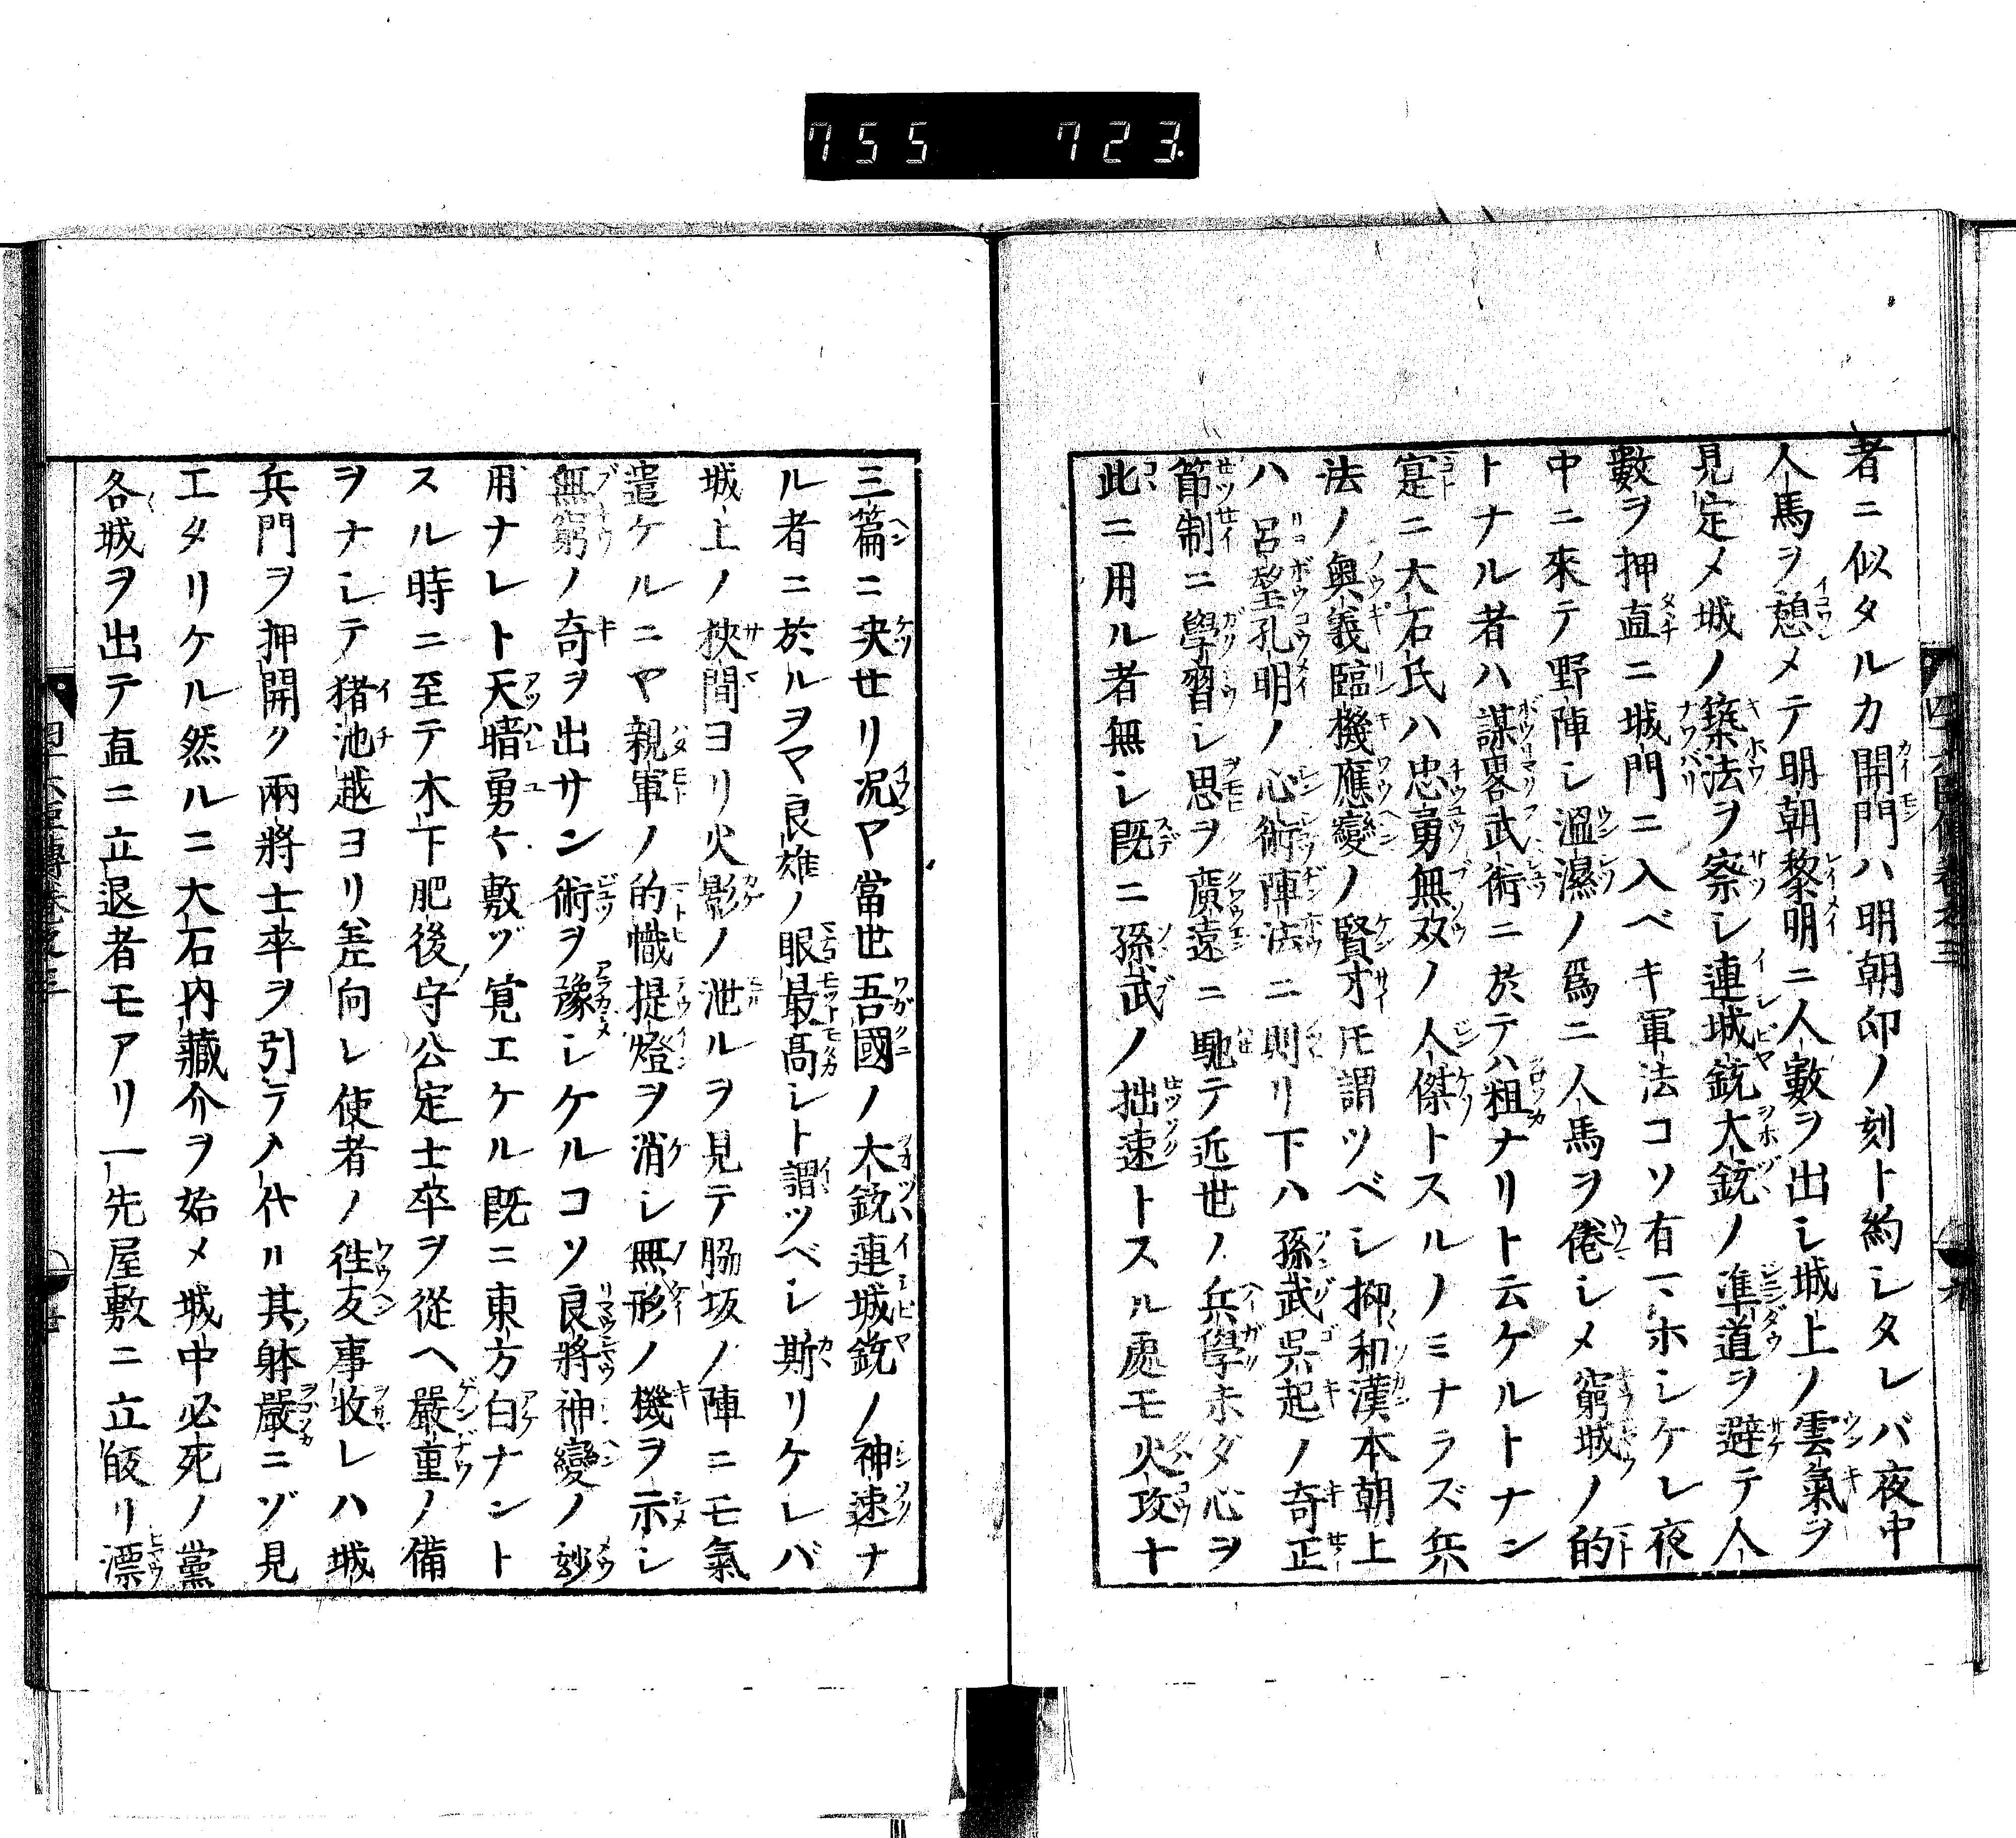 755 723.
者ニ似タルカ開門ハ明朝卯ノ刻ト約シタレバ夜中
人馬ヲ憩メテ明朝黎明ニ人數ヲ出シ城上ノ雲氣ヲ
見定メ城ノ築法ヲ察シ連城銃大銃ノ準道ヲ避テ人
數ヲ押直ニ城門ニ入ベキ軍法コソ有マホシケレ夜
中ニ來テ野陣シ溫濕ノ爲ニ人馬ヲ倦シメ窮城ノ的
トナル者ハ謀畧武術ニ於テハ粗ナリト云ケルトナン
寔ニ大石氏ハ忠勇無双ノ人傑トスルノミナラズ兵
法ノ奥義臨機應變ノ賢才モ謂ツベシ抑和漢本朝上
ハ呂望孔明ノ心術陣法ニ則リ下ハ孫武呉起ノ奇正
節制ニ學習シ思ヲ廣遠ニ馳テ近世ノ兵學未ダ心ヲ
此ニ用ル者無シ既ニ孫武ノ拙速トスル處モ火攻十
三篇ニ决せリ况ヤ當世吾國ノ大銃連城銃ノ神速ナ
ル者ニ於ルヲマ良雄ノ眼最高シト謂ツベシ斯リケレバ
城上ノ挾間ヨリ火影ノ泄ルヲ見テ脇坂ノ陣ニモ氣
遣ケルニヤ親軍ノ的幟提燈ヲ消シ無形ノ機ヲ示シ
無窮ノ奇ヲ出サン術ヲ豫シケルコソ良將神變ノ妙
用ナレト天暗勇々敷ヅ覚エケル既ニ東方白ナント
スル時ニ至テ木下肥後守公定士卒ヲ從ヘ嚴重ノ備
ヲナシテ猪池越ヨリ差向レ使者ノ徃友事收レハ城
兵門ヲ押開ク兩將士卒ヲ引テ入代ル其躰嚴ニゾ見
エタリケル然ルニ大石内藏介ヲ始メ城中必死ノ黨
各城ヲ出テ直ニ立退者モアリ一先屋敷ニ立皈リ漂